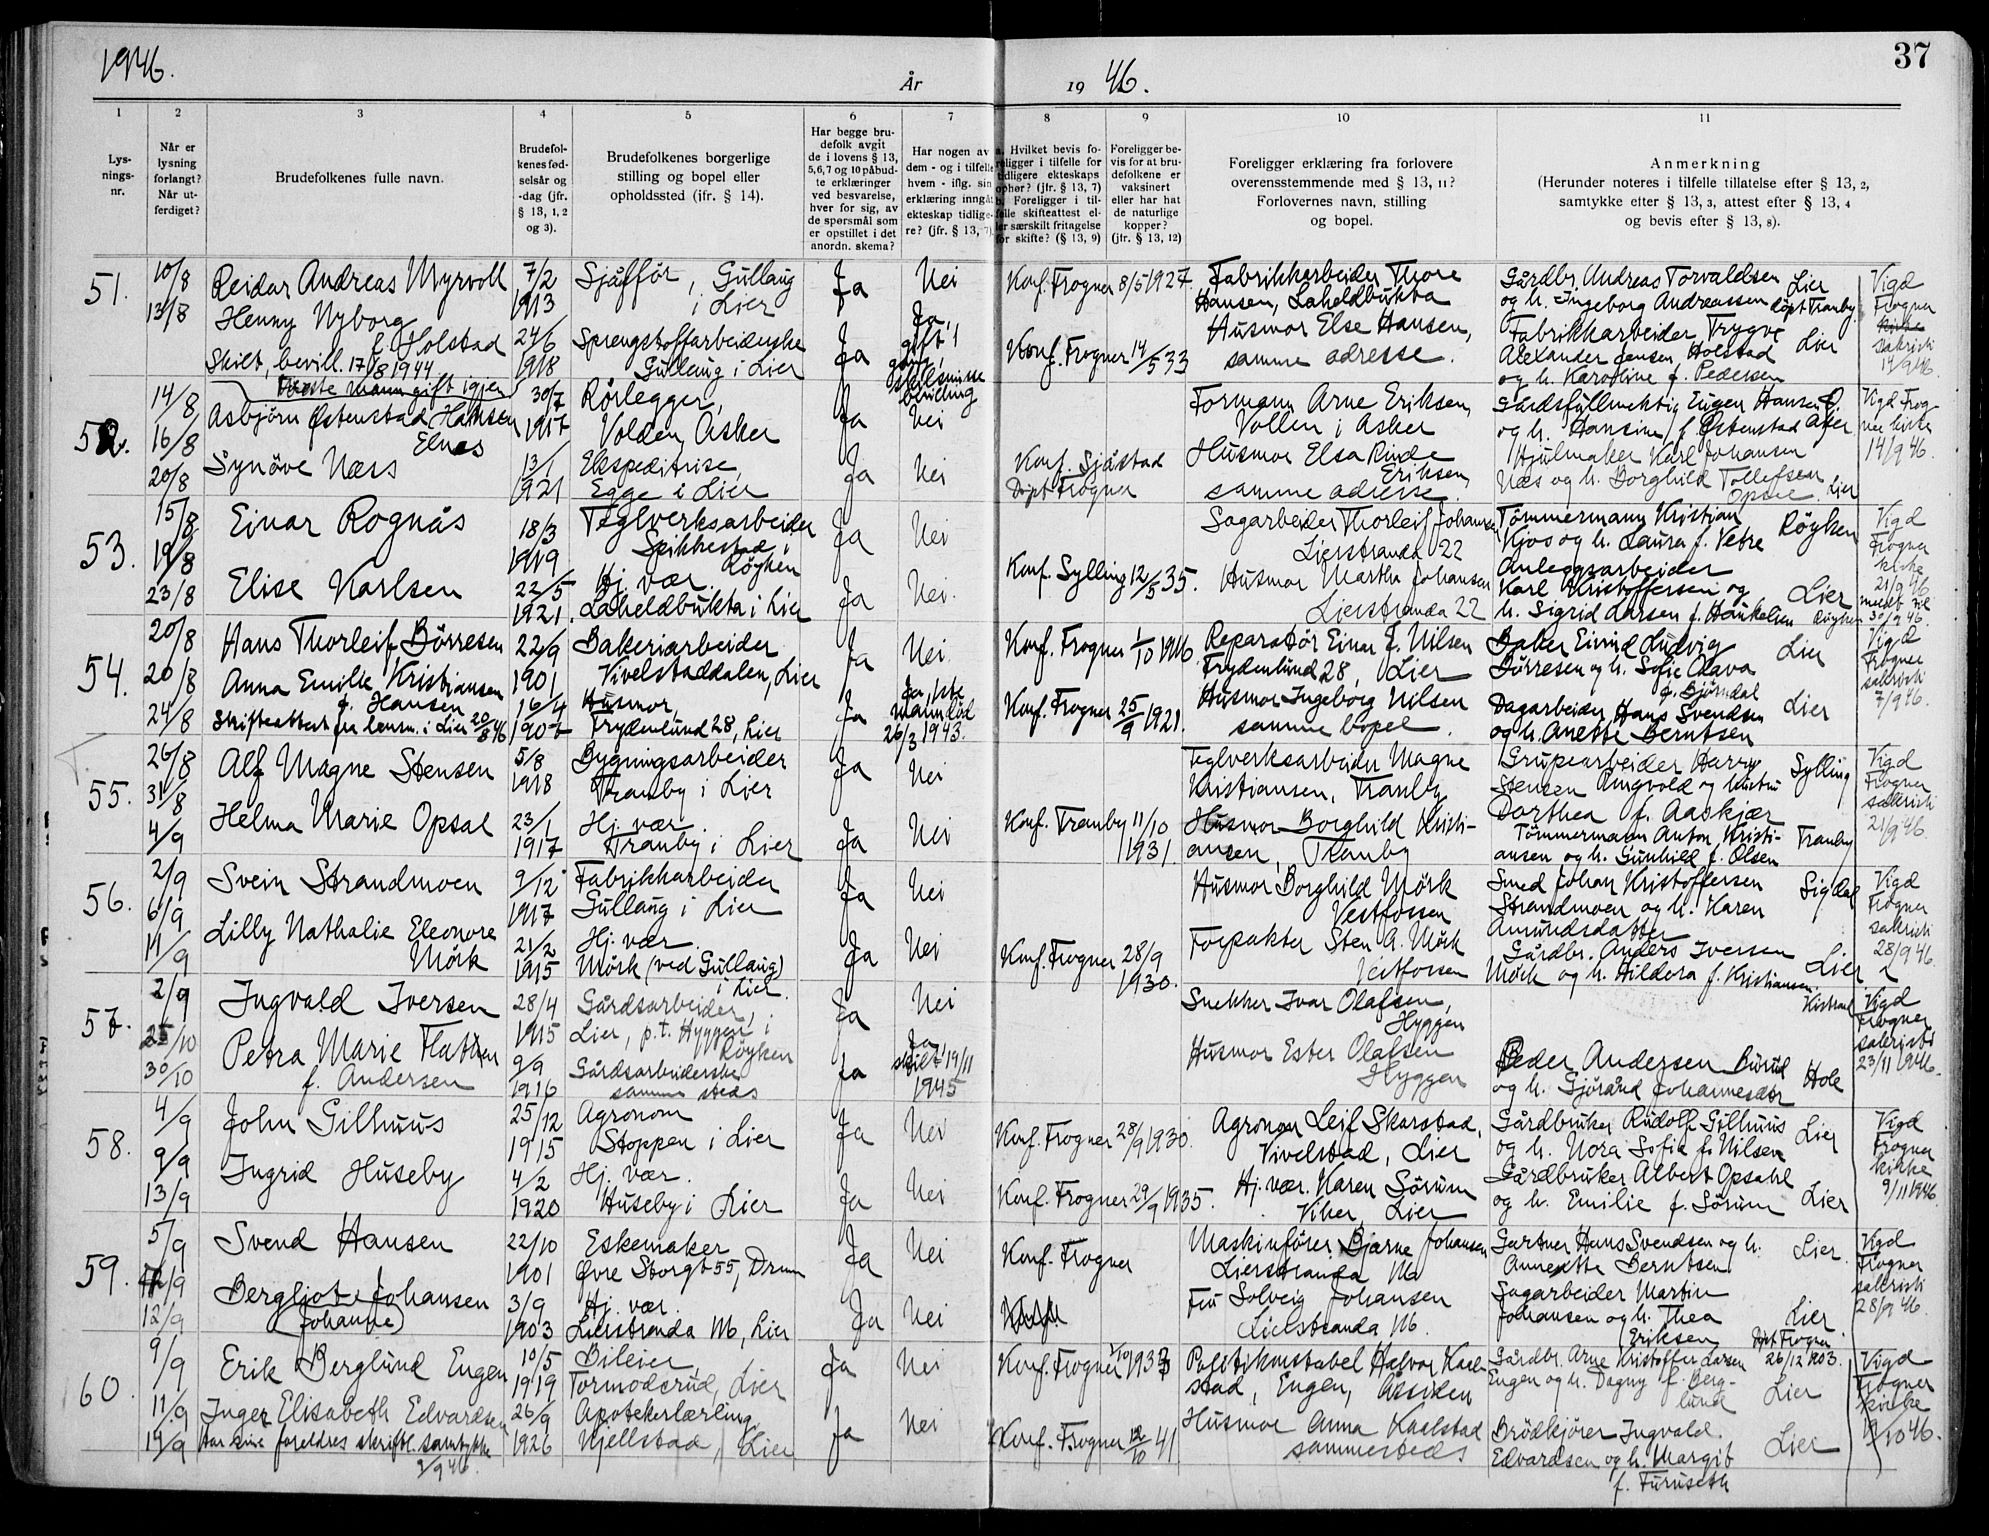 1946.
År
19 46.
37
1 2 3 4 5 6 7 8 9 10 11
Lys-
nings-
nr.
Når er
lysning
forlangt?
Når ut-
ferdiget?
Brudefolkenes fulle navn.
Brudefol-
kenes fød-
selsår og
-dag (jfr.
§ 13, 1, 2
og 3).
Brudefolkenes borgerlige
stilling og bopel eller
opholdssted (jfr. § 14).
Har begge bru-
defolk avgit
de i lovens § 13,
5,6,7 og 10 påbud-
te erklæringer
ved besvarelse,
hver for sig, av
de spørsmål som
er opstillet i det
anordn. skema?
Har nogen av
dem - og i tilfelle
hvem - iflg. sin
erklæring inngåt
ekteskap tidlige-
re? (jfr. § 13, 7)
a. Hvilket bevis fo-
religger i tilfelle for
tidligere ekteskaps
ophør? (jfr. § 13, 7)
b. Foreligger i til-
felle skifteattest el-
ler særskilt fritagelse
for skifte? (§ 13, 9)
Foreligger be-
vis for at bru-
defolkene er
vaksinert
eller har hat
de naturlige
kopper?
(jfr. § 13, 12)
Foreligger erklæring fra forlovere
overensstemmende med § 13, 11?
Forlovernes navn, stilling
og bopel.
Anmerkning
(Herunder noteres i tilfelle tillatelse efter § 13, 2,
samtykke efter § 13, 3, attest efter § 13, 4
og bevis efter § 13, 8).
51.
10/8
13/8
Reidar Andreas Myrvoll
7/2
1913
Sjåfför, Gullaug
i Lier
Ja
Nei
Konf. Frogner 8/5 1927.
Fabrikkarbeider Thore
Hansen, Laheldbukta
Gårdbr. Andreas Torvaldsen Lier
og h. Ingeborg Andreassen döpt Tranby.
Henny Nyborg
f. Holstad
Skilt, bevill. 17/8 1944
24/6
1918
Sprengstoffarbeiderske
Gullaug i Lier
Ja
Ja,
gift 1
gang,
skilsmisse
bevilling
Konf. Frogner 14/5 33
Husmor Else Hansen,
samme adresse.
Fabrikkarbeider Trygve
Alexander Jensen Holstad Lier
og h. Karoline f. Pedersen
Vigd
Frogner
kirke
sakristi
14/9 46.
52.
14/8
16/8
20/8
Første mann gift igjen
Asbjörn Østenstad Hansen
Elnes
30/7
1917
Rörlegger,
Volden, Asker
Ja
Nei
Formann Arne Eriksen,
Vollen i Asker
Gårdsfullmektig Eugen Hansen
og h. Hansine f. Østenstad
Synöve Næss
13/1
1921
Ekspeditrise,
Egge i Lier
Ja
Nei
Konf. Sjåstad
Döpt Frogner
Husmor Elsa Rinde
Eriksen,
samme adresse.
Hjulmaker Karl Johansen
Næs og h. Borghild Tollefsen
Lier
Vigd Frog-
ner kirke
14/9 46.
53.
15/8
19/8
23/8
Einar Rognås
18/3
1919
Teglverksarbeider
Spikkestad i
Röyken
Ja
Nei
Sagarbeider Thorleif Johansen
Lierstranda 22
Tömmermann Kristian
Kjos og h. Laura f. Vetre
Röyken
Elise Karlsen
22/5
1921.
Hj. vær.
Laheldbukta i Lier
Ja
Nei.
Konf. Sylling 12/5 35.
Husmor Martha Johansen
Lierstranda 22
Anleggsarbeider
Karl Kristoffersen og
h. Sigrid Larsen f. Haukelien
Lier
Vigd
Frogner
kirke
21/9 46
meldt til
Röyken 30/9 46.
54.
20/8
20/8
24/8
Hans Thorleif Börresen
22/9
1901
Bakeriarbeider
Vivelstaddalen, Lier
Ja
Nei
Konf. Frogner 1/10 1916.
Reparatör Einar E. Nilsen
Frydenlund 28, Lier
Baker Eivind Ludvig
Börresen og h. Sofie Olava
f. Björndal
Lier
Anna Emilie Kristiansen
f. Hansen
Skifteattest fra lensm. i Lier 20/8 46
16/4
1907
Husmor,
Frydenlund 28, Lier
Ja
Ja, 1ste
mann död
26/3 1943.
Konf. Frogner 25/9 1921.
Husmor Ingeborg Nilsen
samme bopel.
Dagarbeider Hans Svendsen
og h. Anette Berntsen
Lier
Vigd
Frogner
sakristi
7/9 46.
55.
26/8
31/8
4/9
Alf Magne Stensen
5/8
1918
Bygningsarbeider
Tranby i Lier
Ja
Nei
Teglverksarbeider Magne
Kristiansen, Tranby
Grupearbeider Harry
Stensen Amgvold og hustru
Dorthea f. Aaskjær
Sylling
Helma Marie Opsal
23/1
1917
Hj. vær.
Tranby i Lier
Ja
Nei
Konf. Tranby 11/10
1931
Husmor Borghild Kristi-
ansen, Tranby
Tömmermann Anton Kristi-
ansen og h. Gunhild f. Olsen
Tranby
Vigd
Frogner
sakristi
21/9 46.
56.
2/9
6/9
11/9
Svein Strandmoen
9/12
1917
Fabrikkarbeider
Gullaug i Lier
Ja
Nei
Husmor Borghild Mörk
Vestfossen
Smed Johan Kristoffersen
Strandmoen og h. Karen
Amundsdatter
Sigdal
Lilly Nathalie Eleonore
Mörk
21/2
1915
Hj. vær.
Mörk (ved Gullaug)
i Lier.
Ja
Nei
Konf. Frogner 28/9
1930.
Forpakter Sten A. Mörk
Vestfossen
Gårdbr. Anders Iversen
Mörk og h. Hildora f. Kristiansen.
Lier
Vigd
Frogner
sakristi
28/9 46.
57.
2/9
25/10
30/10
Ingvald Iversen
28/4
1915
Gårdsarbeider,
Lier, p.t. Hyggen i
Röyken
Ja
Nei
Snekker Ivar Olafsen,
Hyggen
Petra Marie
f. Andersen
9/9
1916
Gårdsarbeiderske
samme steds
Ja
Ja,
skilt 19/11
1945
Husmor Ester Olafsen
Hyggen
Peder Andersen Burud
og h. Gjöråd Johannesdtr
Hole
Vigd
Frogner
sakristi
23/11 1946.
58.
4/9
9/9
13/9
John Gilhuus
25/12
1915
Agronom
Stoppen i Lier
Ja
Nei
Konf. Frogner 28/9 1930.
Agronom Leif Skarstad,
Vivelstad, Lier
Gårdbruker Rudolf Gilhuus
og h. Nora Sofie f. Nilsen
Lier
Ingrid Huseby
4/2
1920
Hj. vær.
Huseby i Lier
Ja
Nei
Konf. Frogner 29/9 1935.
Hj. vær. Karen Sörum
Viker, Lier
Gårdbruker Albert Opsahl
og h. Emilie f. Sörum
Lier
Vigd
Frogner
kirke
9/11 1946.
59.
5/9
12/9
Svend Hansen
22/10
1901
Eskemaker
Øvre Storgt 55, Drmn
Ja
Nei
Konf. Frogner
Maskinförer Bjarne Johansen
Lierstranda M
Gartner Hans Svendsen og h.
Annette Berntsen
Lier.
Bergliot Johansen
(Johanne)
3/9
1903
Hj. vær.
Lierstranda M, Lier
Ja
Nei
Fru Solveig Johansen
Lierstranda M.
Sagarbeider Martin
Johansen og h. Thea
Eriksen
Lier
Döpt Frogner
26/12 1903.
Vigd
Frogner
sakristi
28/9 46.
60.
9/9
11/9
14/9
Erik Berglund Engen
10/5
1919
Bileier,
Tormoderud, Lier
Ja
Nei
Konf. Frogner
Politikonstabel Halvor Kaal-
stad, Engen, Åssiden
Gårdbr. Arne Kristoffer Larsen
Engen og h. Dagny f. Berg-
lund
Lier
Inger Elisabeth Edvardsen
Har sine foreldres skriftl. samtykke
9/9 46.
26/9
1926
Apotekerlærling
Kjellstad, Lier
Ja
Nei
Konf. Frogner 12/10 41
Husmor Anna Kaalstad
sammesteds
Brödkjörer Ingvald
Edvardsen og h. Margit
f. Furuseth
Lier
Vigd
Frogner
kirke